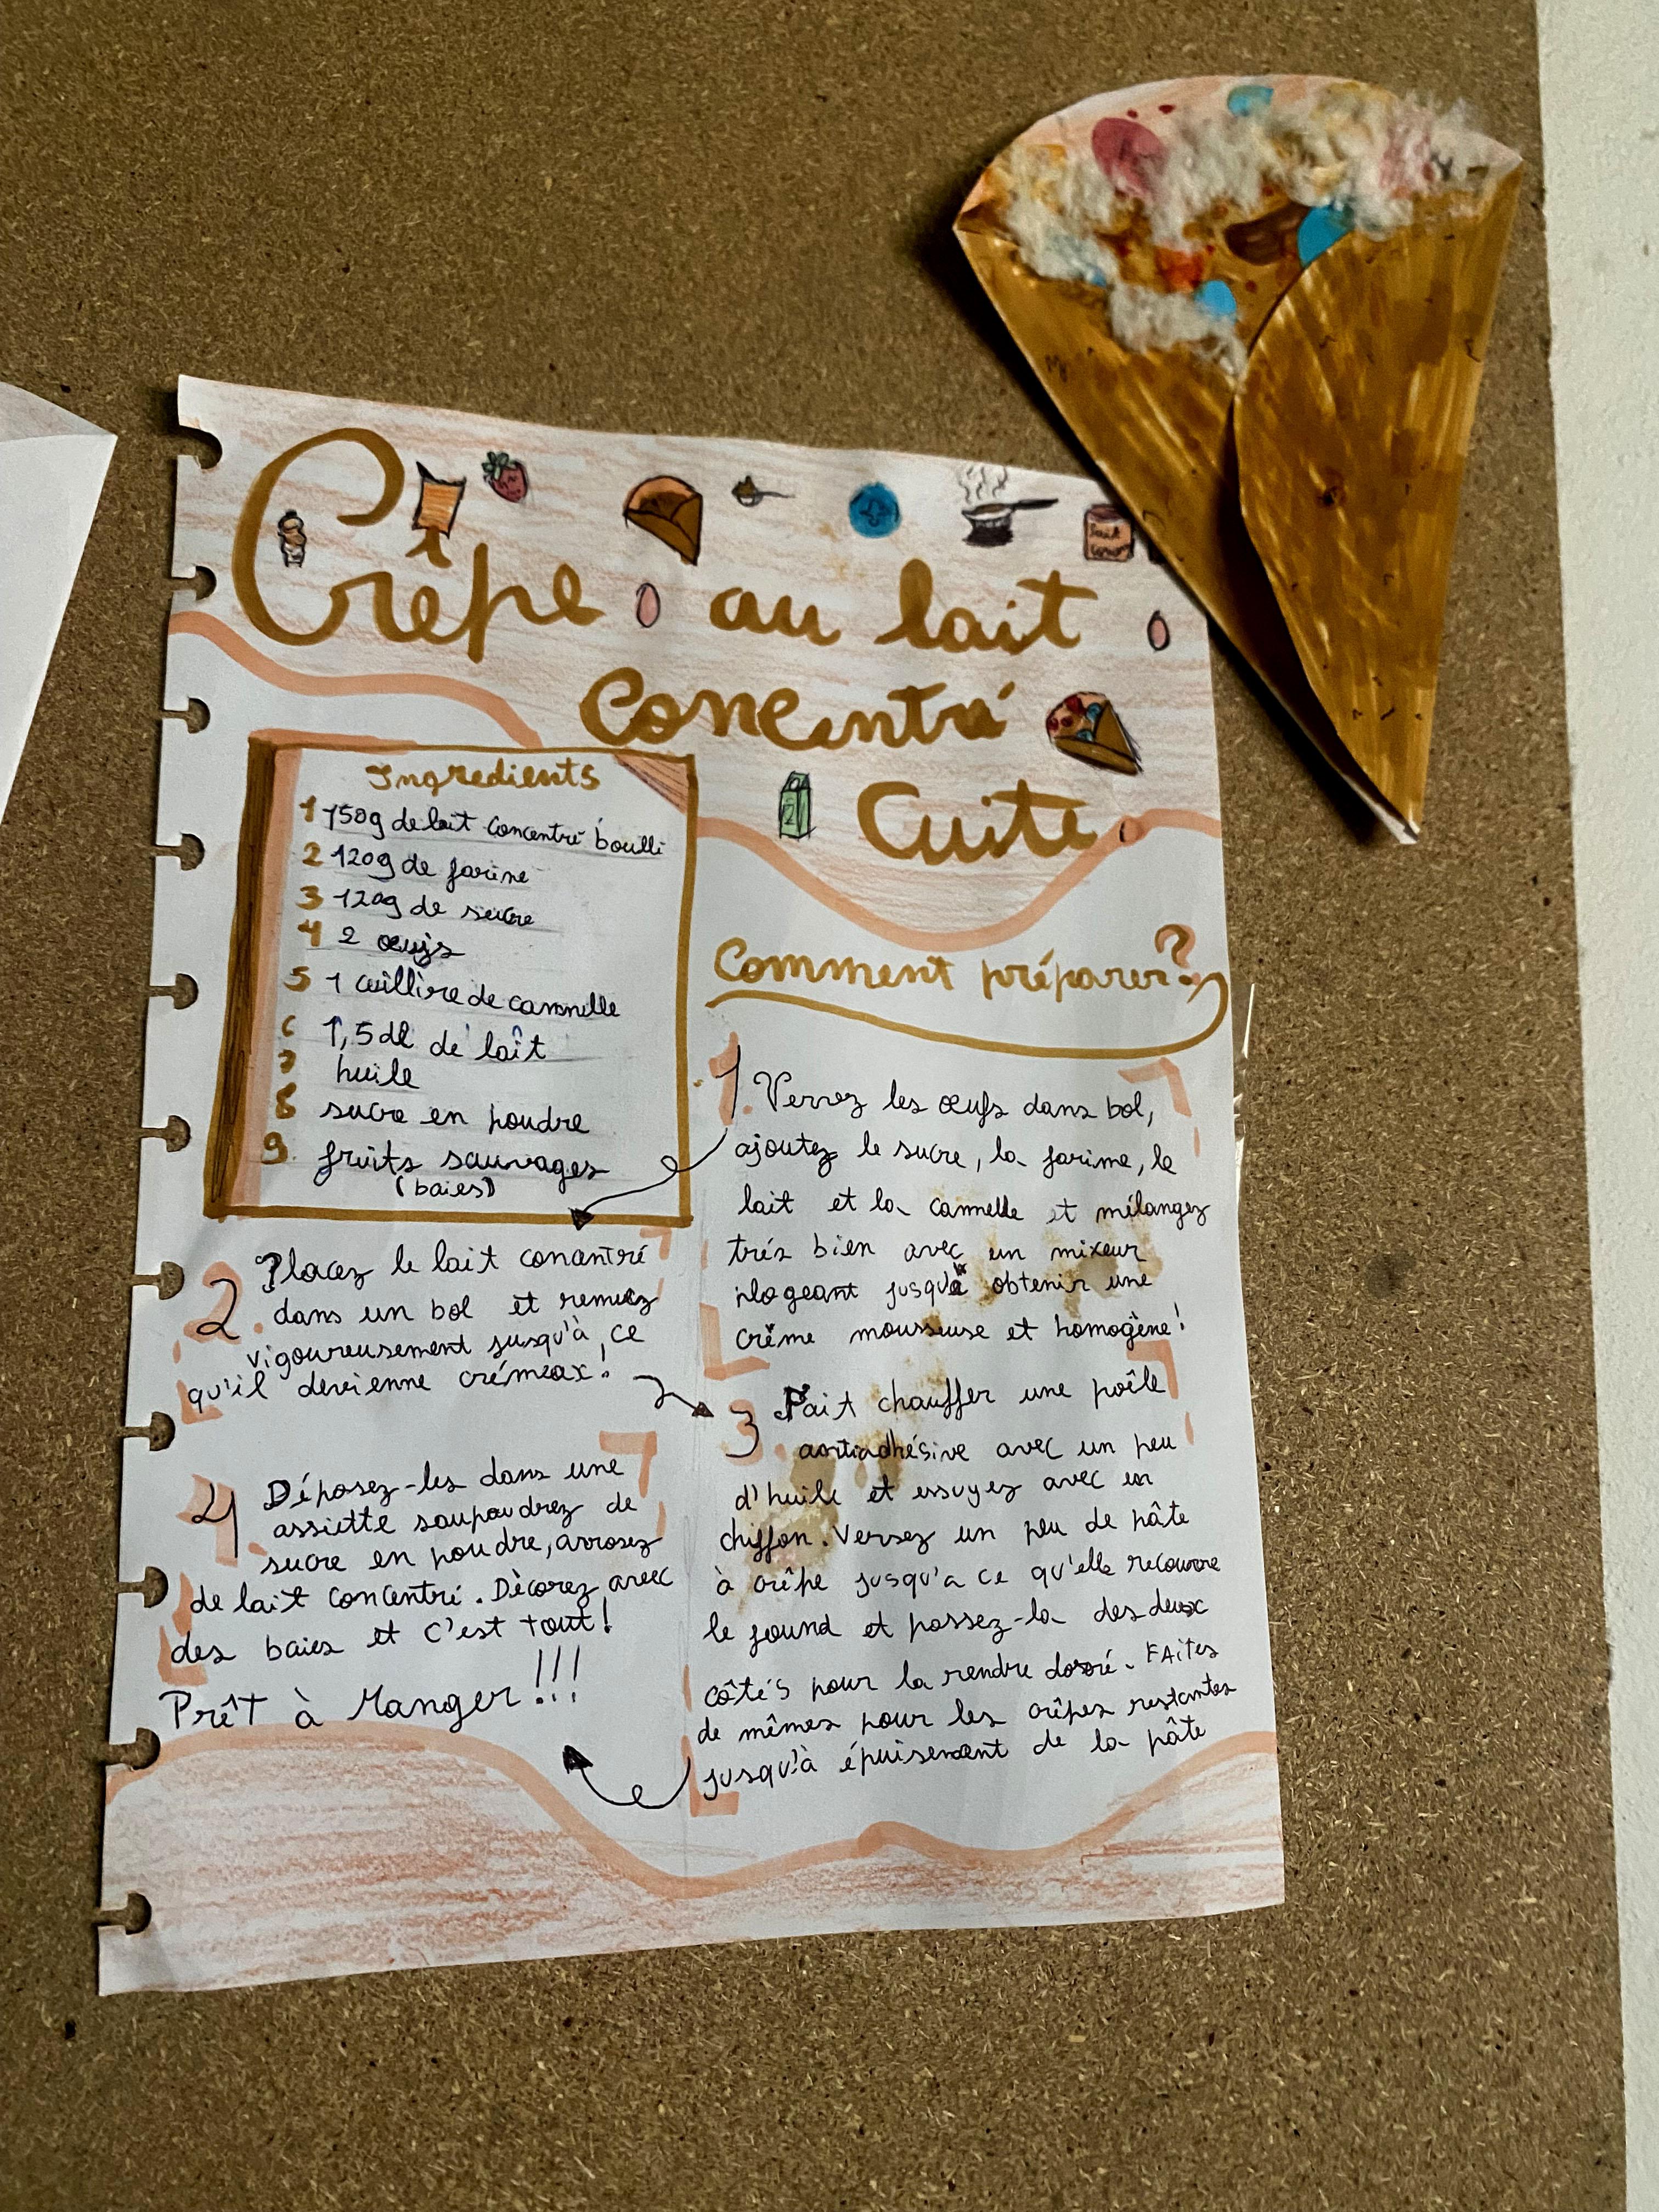 Crêpe au lait
Concentré
Cuite
Ingredients
1 150g de lait concentré boulli
2 120g de farine
3 120g de sucre
4 2 œufs
5 1 cuillire de cannelle
6 1,5 dl de laît
7 huile
8 sucre en poudre
9. fruits sauvages
(baies)
Comment préparer?
1. Versez les œufs dans bol,
ajoutez le sucre, la farine, le
lait et la cannelle et mélangez
trés bien avec un mixeur
plogeant jusqu'à obtenir une
crème mousseuse et homogène!
2. Placez le lait conentré
dans un bol et remuez
vigoureusement jusqu'à ce
qu'il devienne crémeax!
3. Fait chauffer une poêle
antiadhésive avec un peu
d'huile et essuyez avec un
chiffon. Versez un peu de pâte
à crêpe jusqu'a ce qu'elle recouvre
le found et passez-la des deux
côtés pour la rendre doré. FAites
de mêmes pour les crêpes restantes
jusqu'à épuisement de la pâte
4. Déposez-les dans une
assiette saupoudrez de
sucre en poudre, arrosez
de lait concentré. Dècorez avec
des baies et c'est tout!
Prêt à Manger!!!